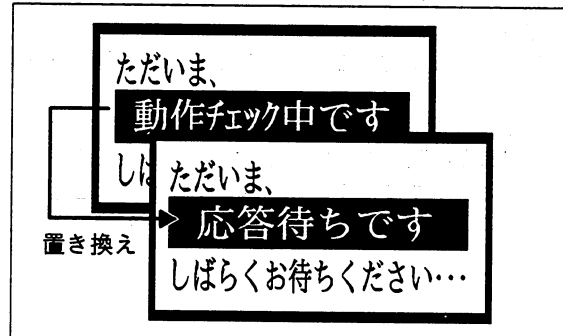 ただいま、
動作チェック中です
しば
ただいま、
応答待ちです
しばらくお待ちください…
置き換え